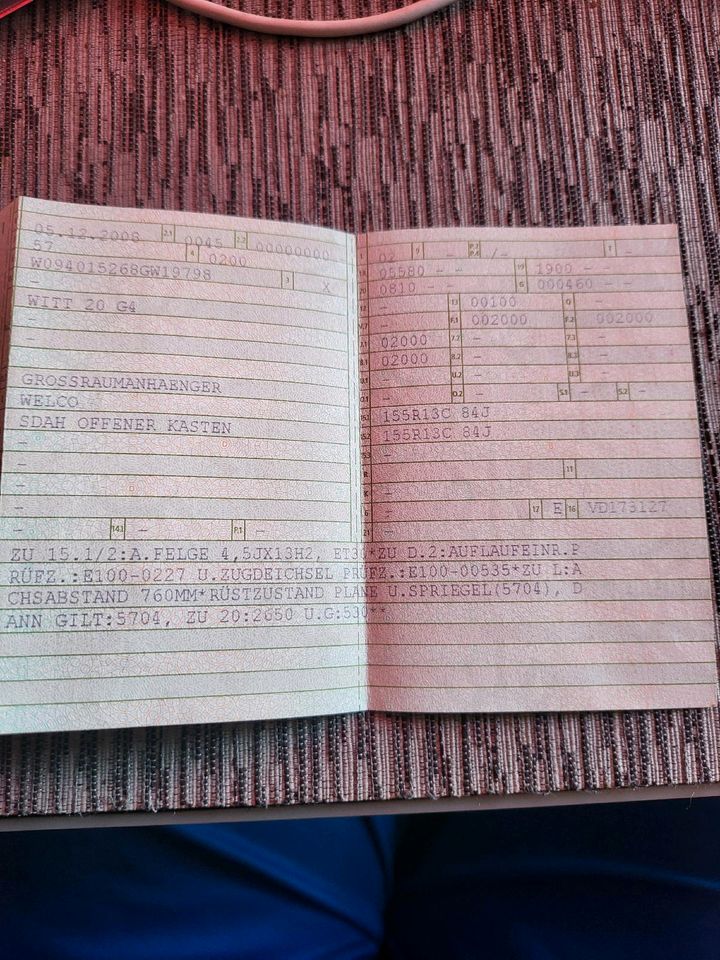 05.12.2008 2.1 0045 2.2 00000000
57 4 0200
W094015268GW19798 3 X
-
WITT 20 G4
-
-
GROSSRAUMANHAENGER
WELCO
SDAH OFFENER KASTEN
-
-
-
- 14.1 - P.1 -
02 9 - P.2 P.4 -/- T -
18 05580 - - 19 1900 - -
20 0810 - - G 000460 - -
12 - 13 00100 Q -
V.7 - F.1 002000 F.2 002000
7.1 02000 7.2 - 7.3 -
8.1 02000 8.2 - 8.3 -
U.1 - U.2 - U.3 -
O.1 - O.2 - S.1 - S.2 -
15.1 155R13C 84J
15.2 155R13C 84J
15.3 -
R - 11
K -
6 - 17 E 16 VD173127
21 -
ZU 15.1/2:A.FELGE 4,5JX13H2, ET30*ZU D.2:AUFLAUFEINR.P
RÜFZ.:E100-0227 U.ZUGDEICHSEL PRÜFZ.:E100-00535*ZU L:A
CHSABSTAND 760MM*RÜSTZUSTAND PLANE U.SPRIEGEL(5704), D
ANN GILT:5704, ZU 20:2650 U.G:530**